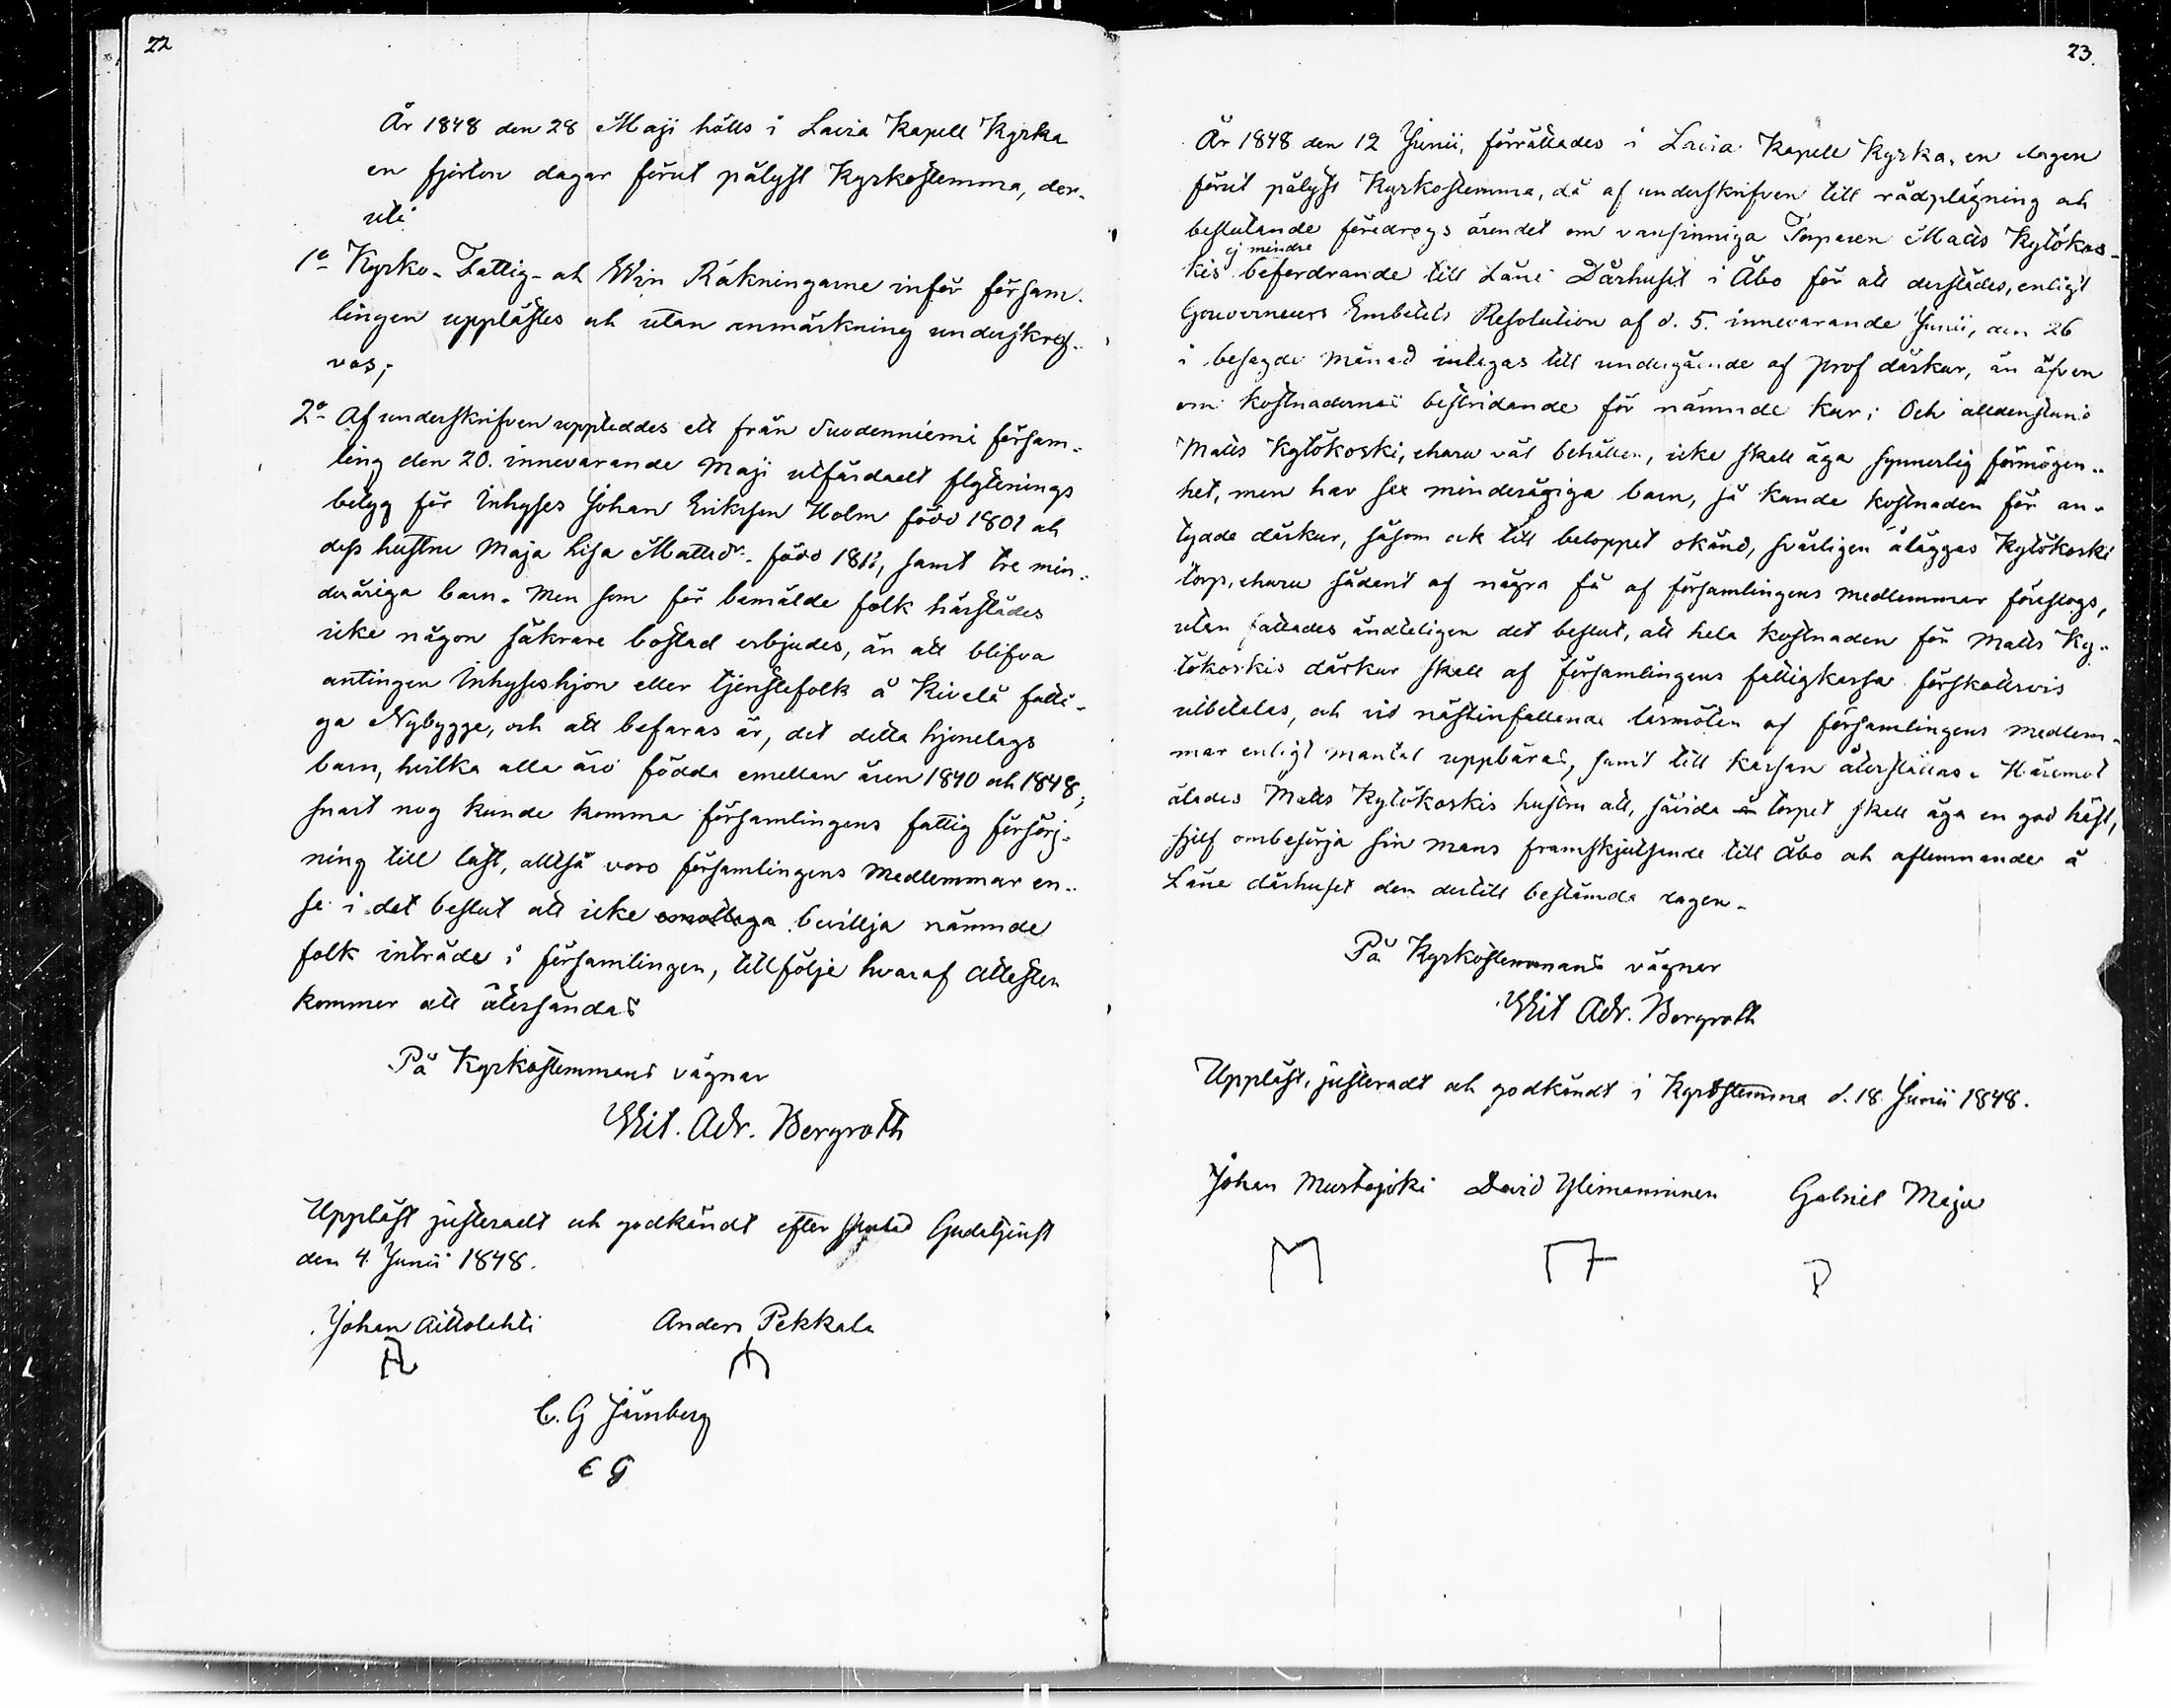 22
År 1848 den 28 Maji hölls i Lavia Kapell Kyrka
en fjorton dagar förut pålyst Kyrkostemma, der-
uti
1o Kyrko- Fattig- och Win Räkningarne inför försam-
lingen upplästes och utan anmärkning underskref-
vos;
2o Af underskrifven uppteddes ett från Suodenniemi försam-
ling den 20. innevarande Maji utfärdadt flyttnings
betyg för Inhyses Johan Eriksson Holm född 1801 och
dess hustru Maja Lisa Mattsdr. född, samt tre min-
deråriga barn. Men som för bemälde folk härstädes
icke någon säkrare bostad erbjudes, än att blifva
antingen Inhyseshjon eller tjenstefolk å Kivelä fatti-
ga Nybygge, och att befaras är, det detta hjonelags
barn, hvilka alla äro födda emellan åren 1840 och 1848,
snart nog kunde komma församlingens fattig försörj-
ning till last, alltså voro församlingens Medlemmar en-
se i det beslut att icke emottaga bevillja nämnde
folk inträde i församlingen, tillfölje hvaraf attesten
kommer att återsändas
På Kyrkostemmans vägnar
Vit. Adr. Bergroth
Uppläst justeradt och godkändt efter slutad Gudstjenst
den 4. Junii 1848.
Johan Aittolahti Anders Pekkala
C. G Jernberg
C G
23.
År 1848 den 12 Junii, förrättades i Lavia Kapell Kyrka, en dagen
förut pålyst Kyrkostemma, då af underskrifven till rådplägning och
beslutande föredrogs ärendet om vansinniga Torparen Matts Kylökos-
ej mindre
kis befordrande till Läns Dårhuset i Åbo för att derstädes, enligt
Gouverneurs Embetets Resolution af d. 5. innevarande Junii, den 26
i besagde månad intagas till undergående af prof dårkur, än äfven
om kostnadernas bestridande för nämnde kur; Och alldenstund
Matts Kylökoski, ehuru väl behållen, icke skall äga synnerlig förmögen-
het, men har sex minderåriga barn, så kunde kostnaden för an-
tydde dårkur, såsom ock till beloppet okänd, svårligen åläggas Kylökoski
torp, ehuru sådent af några få af församlingens medlemmar föreslogs,
utan fattades ändteligen det beslut, att hela kostnaden för Matts Ky-
lökoskis dårkur skall af församlingens fattigkassa förskottsvis
utbetalas, och vid nästinfallande läsmöten af församlingens medlem-
mar enligt mantal uppbäras, samt till kassan återställas. Häremot
ålades Matts Kylökoskis hustru att, såvida å torpet skall äga en god häst,
sjelf ombesörja sin mans framskjutsande till Åbo och aflemnande å
Läne dårhuset den dertill bestämda dagen.
På Kyrkostemmans vägnar
Vit Adr. Bergroth
Uppläst, justeradt och godkändt i Kyrkostemma d. 18 Junii 1848.
Johan Mustajoki David Ylimäminnen Gabriel Maja